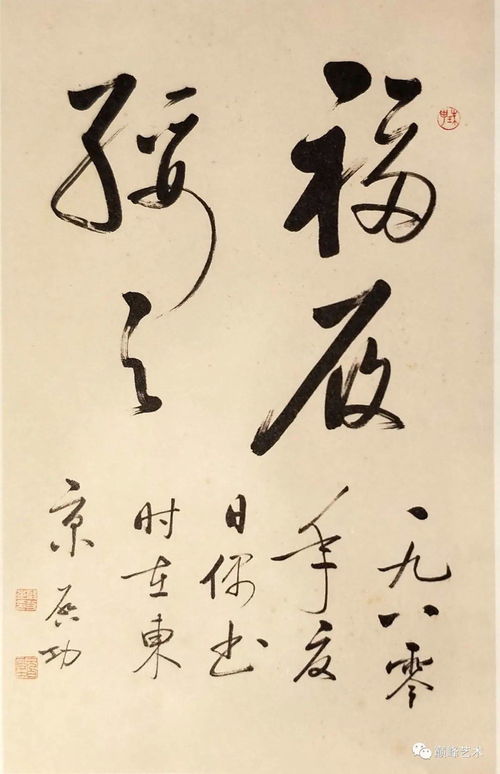 福履
綏之
一九八零
年夏
日偶书
时在東
京 启功
巅峰艺术